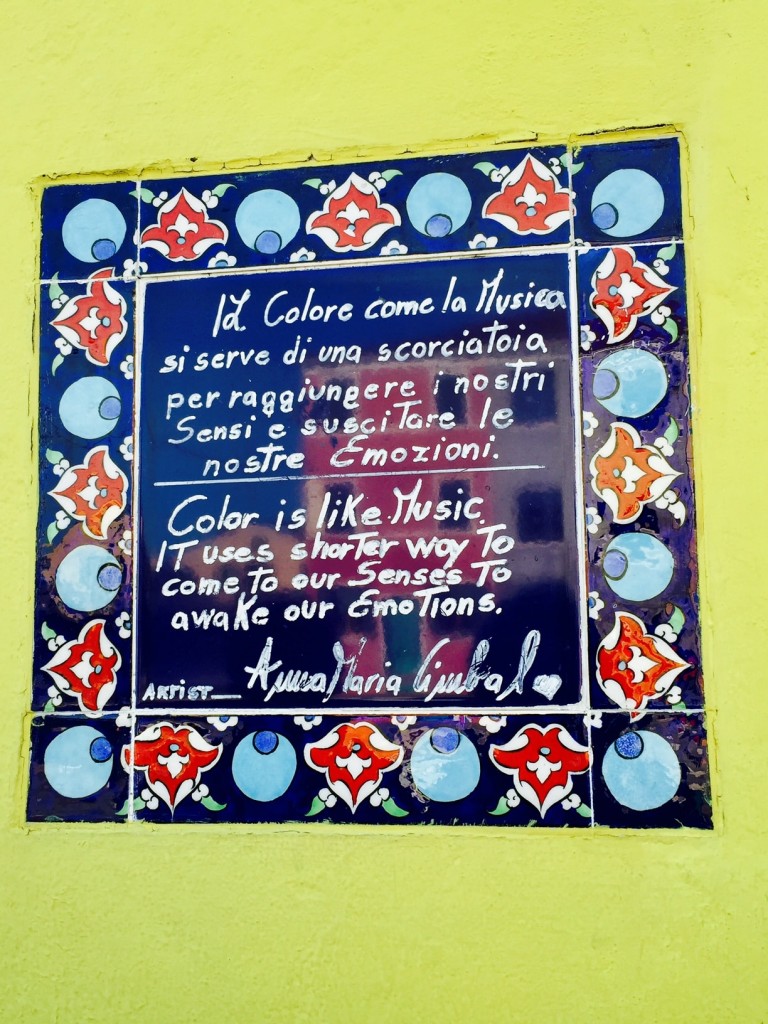 Il Colore come la Musica
si serve di una scorciatoia
per raggiungere i nostri
Sensi e suscitare le
nostre Emozioni.
Color is like Music.
IT uses shorter way To
come To our Senses To
awake our EmoTions.
ARTiST AnnaMaria